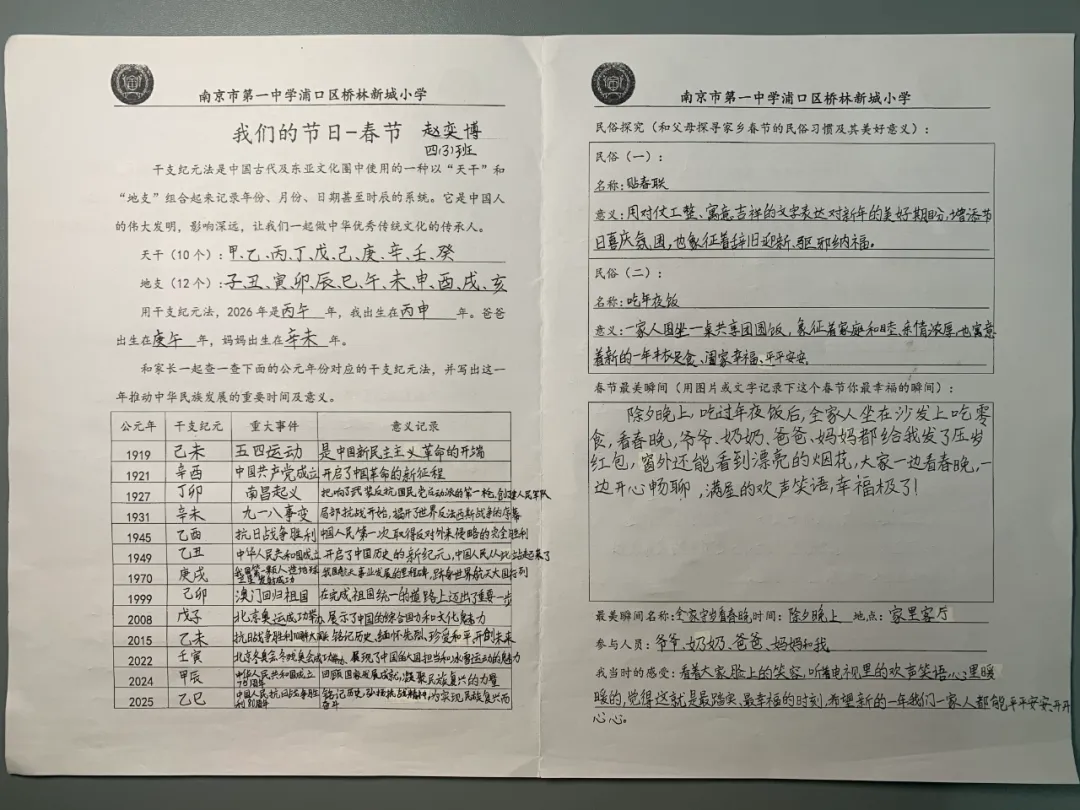 南京市第一中学浦口区桥林新城小学
我们的节日-春节 赵奕博
四(3)班
干支纪元法是中国古代及东亚文化圈中使用的一种以“天干”和
“地支”组合起来记录年份、月份、日期甚至时辰的系统。它是中国人
的伟大发明，影响深远，让我们一起做中华优秀传统文化的传承人。
天干（10个）：甲、乙、丙、丁、戊、己、庚、辛、壬、癸
地支（12个）：子、丑、寅、卯、辰、巳、午、未、申、酉、戌、亥
用干支纪元法，2026年是丙午年，我出生在丙申年。爸爸
出生在庚午年，妈妈出生在辛未年。
和家长一起查一查下面的公元年份对应的干支纪元法，并写出这一
年推动中华民族发展的重要时间及意义。
公元年 干支纪元 重大事件 意义记录
1919 己未 五四运动 是中国新民主主义革命的开端
1921 辛酉 中国共产党成立 开启了中国革命的新征程
1927 丁卯 南昌起义 把响了武装反抗国民党反动派的第一枪，创建人民军队
1931 辛未 九一八事变 局部抗战开始，揭开了世界反法西斯战争的序幕
1945 乙酉 抗日战争胜利 中国人民第一次取得反对外来侵略的完全胜利
1949 乙丑 中华人民共和国成立 开启了中国历史的新纪元，中国人民从此站起来了
1970 庚戌 我国第一颗人造地球卫星发射成功 我国航天事业发展的里程碑，跻身世界航天大国行列
1999 己卯 澳门回归祖国 在完成祖国统一的道路上迈出了重要一步
2008 戊子 北京奥运成功举办 展示了中国的综合国力和文化魅力
2015 乙未 抗日战争胜利70周年大阅兵 铭记历史、缅怀先烈、珍爱和平、开创未来
2022 壬寅 北京冬奥会、冬残奥会成功举办 展现了中国的大国担当和冰雪运动的魅力
2024 甲辰 中华人民共和国成立75周年 回顾国家发展成就，凝聚民族复兴的力量
2025 乙巳 中国人民抗日战争胜利80周年 铭记历史，弘扬抗战精神，为实现民族复兴而奋斗
南京市第一中学浦口区桥林新城小学
民俗探究（和父母探寻家乡春节的民俗习惯及其美好意义）：
民俗（一）：
名称：贴春联
意义：用对仗工整、寓意吉祥的文字表达对新年的美好期盼，增添节
日喜庆氛围，也象征着辞旧迎新、驱邪纳福。
民俗（二）：
名称：吃年夜饭
意义：一家人围坐一桌共享团圆饭，象征着家庭和睦、亲情浓厚，也寓意
着新的一年丰衣足食、阖家幸福、平平安安。
春节最美瞬间（用图片或文字记录下这个春节你最幸福的瞬间）：
除夕晚上，吃过年夜饭后，全家人坐在沙发上吃零
食，看春晚，爷爷、奶奶、爸爸、妈妈都给我发了压岁
红包，窗外还能看到漂亮的烟花，大家一边看春晚，一
边开心畅聊，满屋的欢声笑语，幸福极了！
最美瞬间名称：全家守岁看春晚 时间：除夕晚上 地点：家里客厅
参与人员：爷爷、奶奶、爸爸、妈妈和我
我当时的感受：看着大家脸上的笑容，听着电视里的欢声笑语，心里暖
暖的，觉得这就是最踏实、最幸福的时刻，希望新的一年我们一家人都能平平安安、开开
心心。